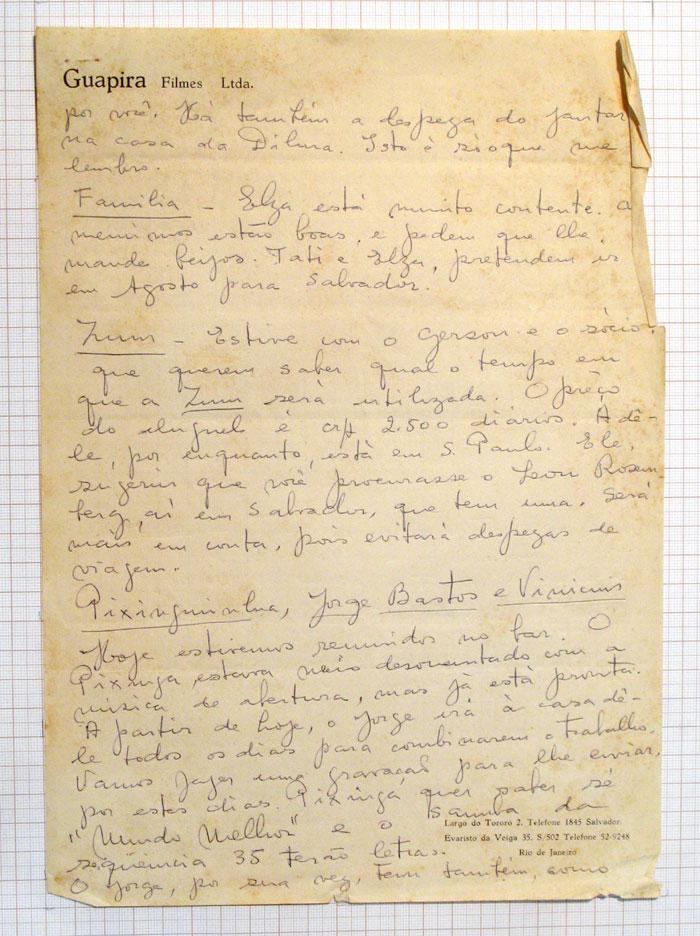 Guapira Filmes Ltda.
por você. Há também a despeza do jantar
na casa da Dilma. Isto é só o que me
lembro.
Familia - Elza está muito contente. a
meninos estão boas, e pedem que lhe
mande beijos. Tati e Elza, pretendem ir
em Agosto para Salvador.
Zum - Estive com o Gerson e o sócio
que querem saber qual o tempo em
que a Zum será utilizada. O preço
do aluguel é cr$ 2.500 diários. A dê-
le, por enquanto, está em S. Paulo. Ele,
sugeriu que você procurasse o Leon Rosem
berg, aí em Salvador, que tem uma. Será
mais em conta, pois evitará despezas de
viagem.
Pixinguinha, Jorge Bastos e Vinicius
Hoje estivemos reunidos no bar. O
Pixinga estava meio desorientado com a
música de abertura, mas já está pronta.
A partir de hoje, o Jorge irá à casa dê-
le todos os dias para combinarem o trabalho.
Vamos fazer uma gravação para lhe enviar,
por estes dias. Pixinga, quer saber sé
"Mundo Melhor" e o samba da
seqüência 35 terão letras.
O Jorge, por sua vez, tem também, como
Largo do Tororó 2. Telefone 1845 Salvador.
Evaristo da Veiga 35. S/502 Telefone 52-9248
Rio de Janeiro